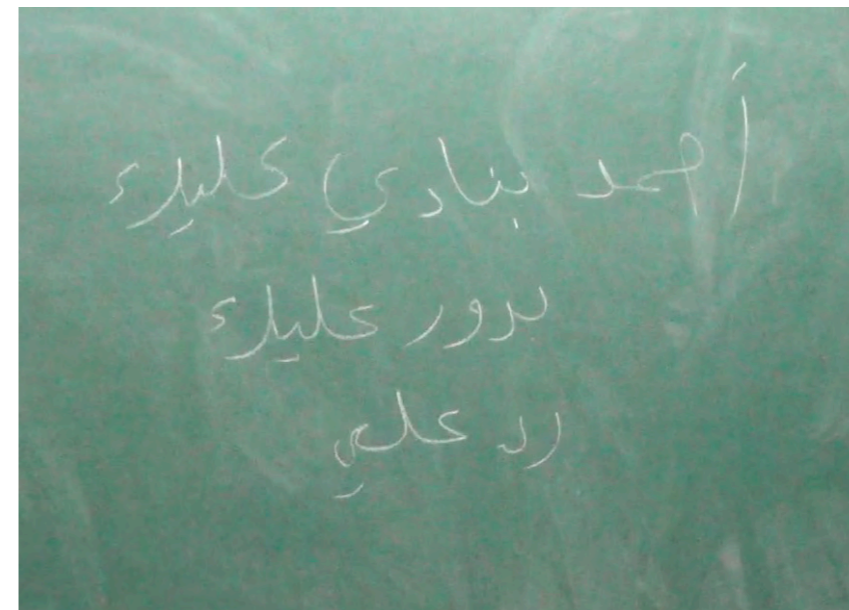 أحمد بنادي عليك
بدور عليك
رد علي